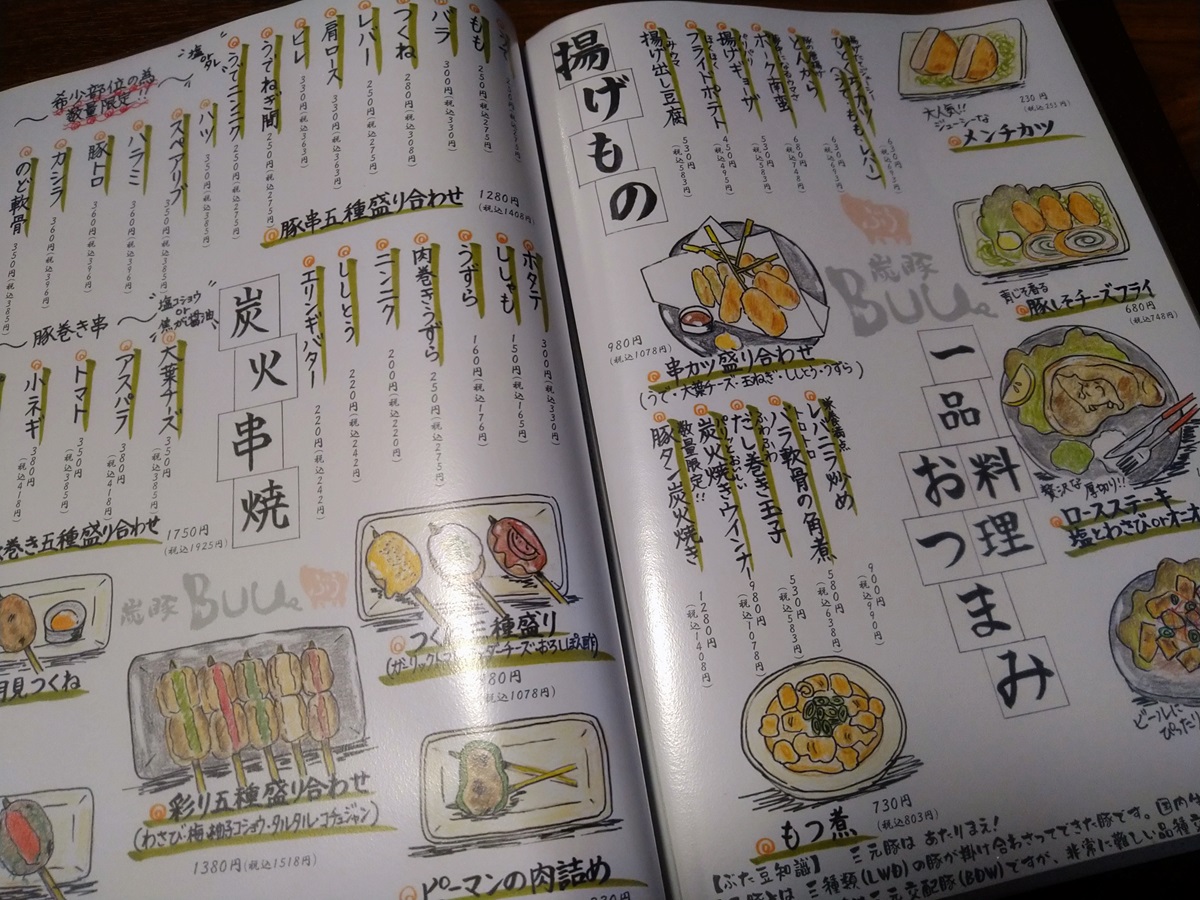 希少部位の為
数量限定!!
塩orタレ
もも
250円(税込275円)
バラ
300円(税込330円)
つくね
280円(税込308円)
レバー
250円(税込275円)
肩ロース
330円(税込363円)
ヒレ
330円(税込363円)
うでねぎ間
250円(税込275円)
うでニンニク
250円(税込275円)
ハツ
350円(税込385円)
スペアリブ
350円(税込385円)
ハラミ
360円(税込396円)
豚トロ
360円(税込396円)
カシラ
360円(税込396円)
のど軟骨
350円(税込385円)
豚串五種盛り合わせ
1280円
(税込1408円)
炭火串焼
ホタテ
300円(税込330円)
ししゃも
150円(税込165円)
うずら
160円(税込176円)
肉巻きうずら
250円(税込275円)
ニンニク
200円(税込220円)
ししとう
220円(税込242円)
エリンギバター
220円(税込242円)
豚巻き串
塩コショウ
or
焦がし醤油
大葉チーズ
350円(税込385円)
アスパラ
380円(税込418円)
トマト
350円(税込385円)
小ネギ
380円(税込418円)
巻き五種盛り合わせ
1750円
(税込1925円)
炭豚 BUU ぶう
月見つくね
つくね三種盛り
(税込1078円)
彩り五種盛り合わせ
(わさび・梅・柚子コショウ・タルタル・コチュジャン)
1380円(税込1518円)
ピーマンの肉詰め
揚げもの
ポーク南蛮
530円(税込583円)
揚げギョーザ
450円(税込495円)
フライドポテト
揚げ出し豆腐
530円(税込583円)
680円(税込748円)
230円
(税込253円)
大人気!!
ジューシーな
メンチカツ
青じそ香る
豚しそチーズフライ
680円
(税込748円)
980円
(税込1078円)
串カツ盛り合わせ
(うで・大葉チーズ・玉ねぎ・ししとう・うずら)
炭豚 BUU ぶう
一品料理
おつまみ
贅沢な厚切り!!
ロースステーキ
レバニラ炒め
900円(税込990円)
トロトロ
バラ軟骨の角煮
580円(税込638円)
ふわふわ
だし巻き玉子
530円(税込583円)
炭火焼きウインナー
980円(税込1078円)
数量限定!!
豚タン炭火焼き
1280円(税込1408円)
もつ煮
730円
(税込803円)
ビールに
ぴった
【ぶた豆知識】 三元豚はあたりまえ!
三種類(LWD)の豚が掛け合わさってできた豚です。国内
三元交配豚(BDW)ですが、非常に難しい品種